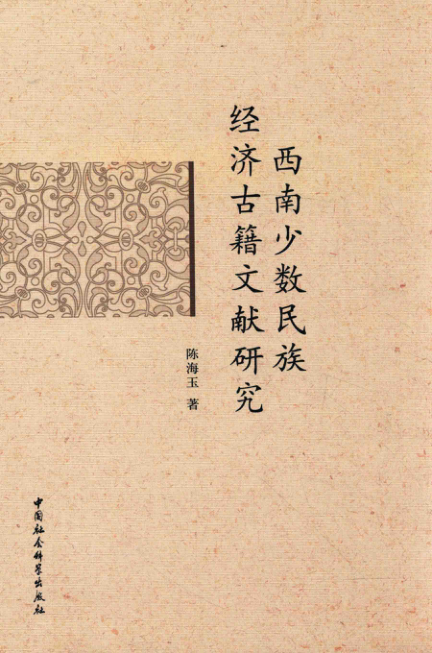 西南少数民族
经济古籍文献研究
陈海玉 著
中国社会科学出版社